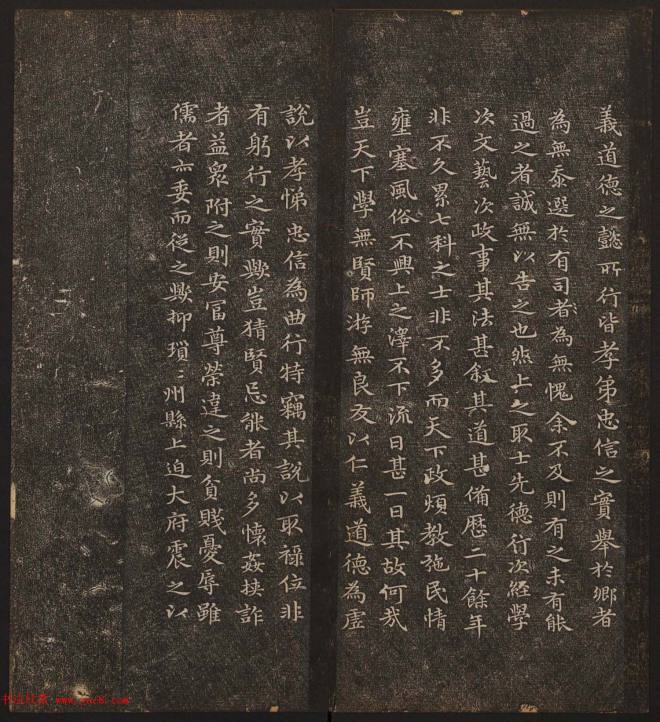 義道德之懿所行皆孝弟忠信之實舉於鄉者
為無忝選於有司者為無愧余不及則有之未有能
過之者誠無以告之也然上之取士先德行次經學
次文藝次政事其法甚叙其道甚俻歷二十餘年
非不久累七科之士非不多而天下政煩教弛民情
壅塞風俗不興上之澤不下流日甚一日其故何哉
豈天下學無賢師游無良友以仁義道德為虛
說以孝悌忠信為曲行特竊其說以取祿位非
有躬行之實歟豈猜賢忌能者尚多懷姦挟詐
者益眾附之則安富尊榮違之則貧賤憂辱雖
儒者亦委而從之歟抑瑣〻州縣上迫大府震之以
书法欣赏 www.yac8.com